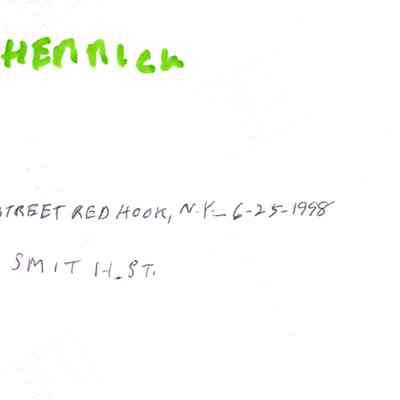 HENNICK
STREET RED HOOK, N.Y. 6-25-1998
SMITH ST.